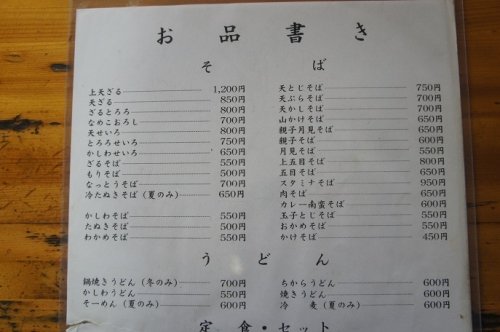 お品書き
そば
上天ざる 1,200円
天ざる 850円
ざるとろろ 800円
なめこおろし 700円
天せいろ 800円
とろろせいろ 750円
かしわせいろ 650円
ざるそば 550円
もりそば 500円
なっとうそば 700円
冷たぬきそば (夏のみ) 650円
かしわそば 550円
たぬきそば 500円
わかめそば 550円
天とじそば 750円
天ぷらそば 700円
天かしそば 700円
山かけそば 650円
親子月見そば 650円
親子そば 600円
月見そば 550円
上五目そば 800円
五目そば 650円
スタミナそば 950円
肉そば 650円
カレー南蛮そば 600円
玉子とじそば 550円
おかめそば 550円
かけそば 450円
うどん
鍋焼きうどん (冬のみ) 700円
かしわうどん 550円
そーめん (夏のみ) 600円
ちからうどん 600円
焼きうどん 600円
冷麦 (夏のみ) 600円
定食・セット